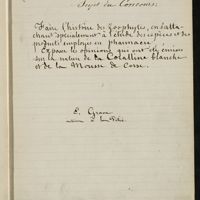 Sujet du Concours:
Faire l'histoire des Zoophytes, en s'atta-
chant spécialement à l'étude des espèces et des
produits employés en pharmacie.
Exposer les opinions qui ont été émises
sur la nature de la Coralline blanche
et de la Mousse de Corse.
E. Grave
à